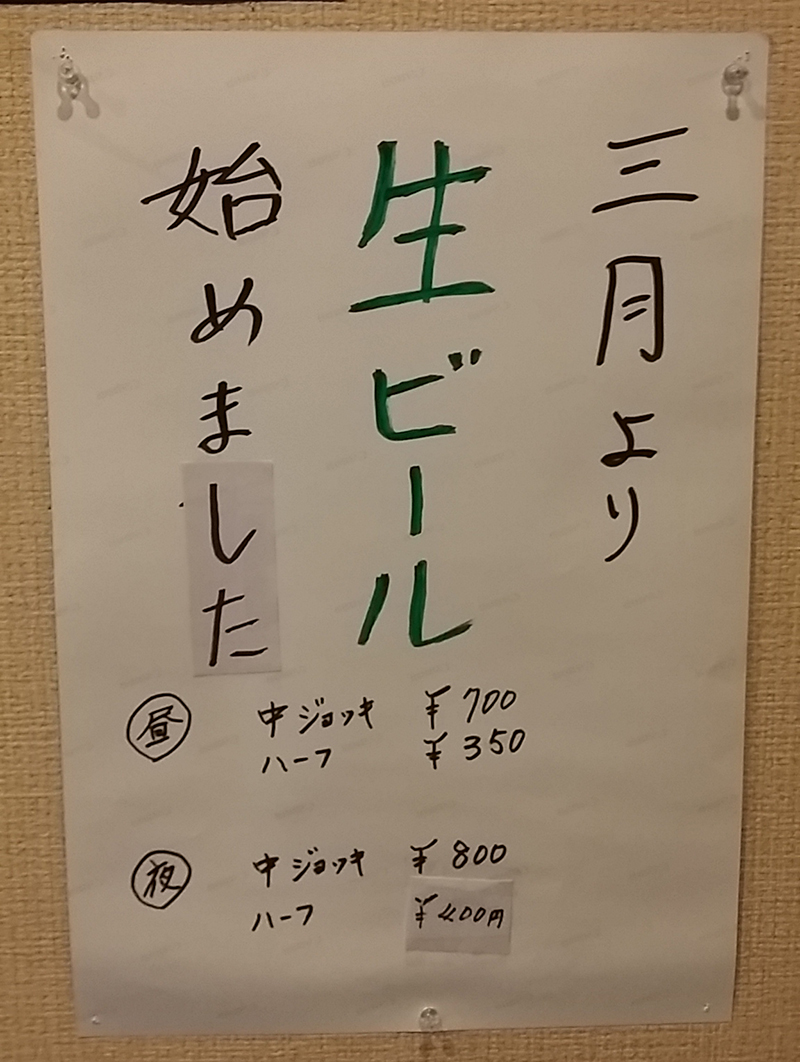 三月より
生ビール
始めました
昼 中ジョッキ ¥700
ハーフ ¥350
夜 中ジョッキ ¥800
ハーフ ¥400円